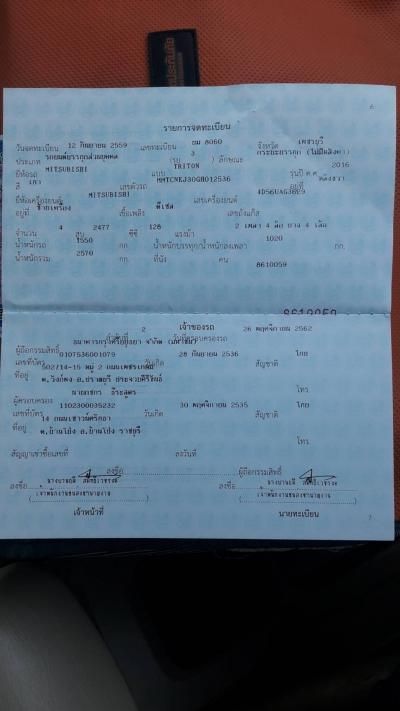 6
รายการจดทะเบียน
วันจดทะเบียน 12 กันยายน 2559 เลขทะเบียน ยม 8060 จังหวัด เพชรบุรี
ประเภท รถยนต์บรรทุกส่วนบุคคล (รย. 3 ) ลักษณะ กระบะบรรทุก
ยี่ห้อรถ MITSUBISHI แบบ TRITON รุ่นปี ค.ศ. 2016
สี เทา เลขตัวรถ MMTCNKJ30GH012536 อยู่ที่
ยี่ห้อเครื่องยนต์ MITSUBISHI เลขเครื่องยนต์ 4D56UAG3869
อยู่ที่ เชื้อเพลิง ดีเซล เลขถังแก๊ส
จำนวน 4 สูบ 2477 ซีซี 128 แรงม้า 2 เพลา 4 ล้อ ยาง 4 เส้น
น้ำหนักรถ 1550 กก. น้ำหนักบรรทุก/น้ำหนักลงเพลา 1020 กก.
น้ำหนักรวม 2570 กก. ที่นั่ง คน 8610059
เจ้าของรถ
2 26 พฤศจิกายน 2562
ผู้ถือกรรมสิทธิ์ ธนาคารกรุงศรีอยุธยา จำกัด (มหาชน)
เลขที่บัตร 0107536001079 วันเกิด 28 กันยายน 2536 สัญชาติ ไทย
ที่อยู่ 502/14-15 หมู่ 2 ถนนเพชรเกษม
ต.วังก์พง อ.ปราณบุรี ประจวบคีรีขันธ์ โทร.
ผู้ครอบครอง
เลขที่บัตร 1102300035232 วันเกิด 30 พฤศจิกายน 2535 สัญชาติ ไทย
ที่อยู่ 14
ต.บ้านโป่ง อ.บ้านโป่ง ราชบุรี โทร.
สัญญาเช่าซื้อเลขที่ ลงวันที่
ลงชื่อ ผู้ถือกรรมสิทธิ์
ลงชื่อ ลงชื่อ
เจ้าหน้าที่ นายทะเบียน
7